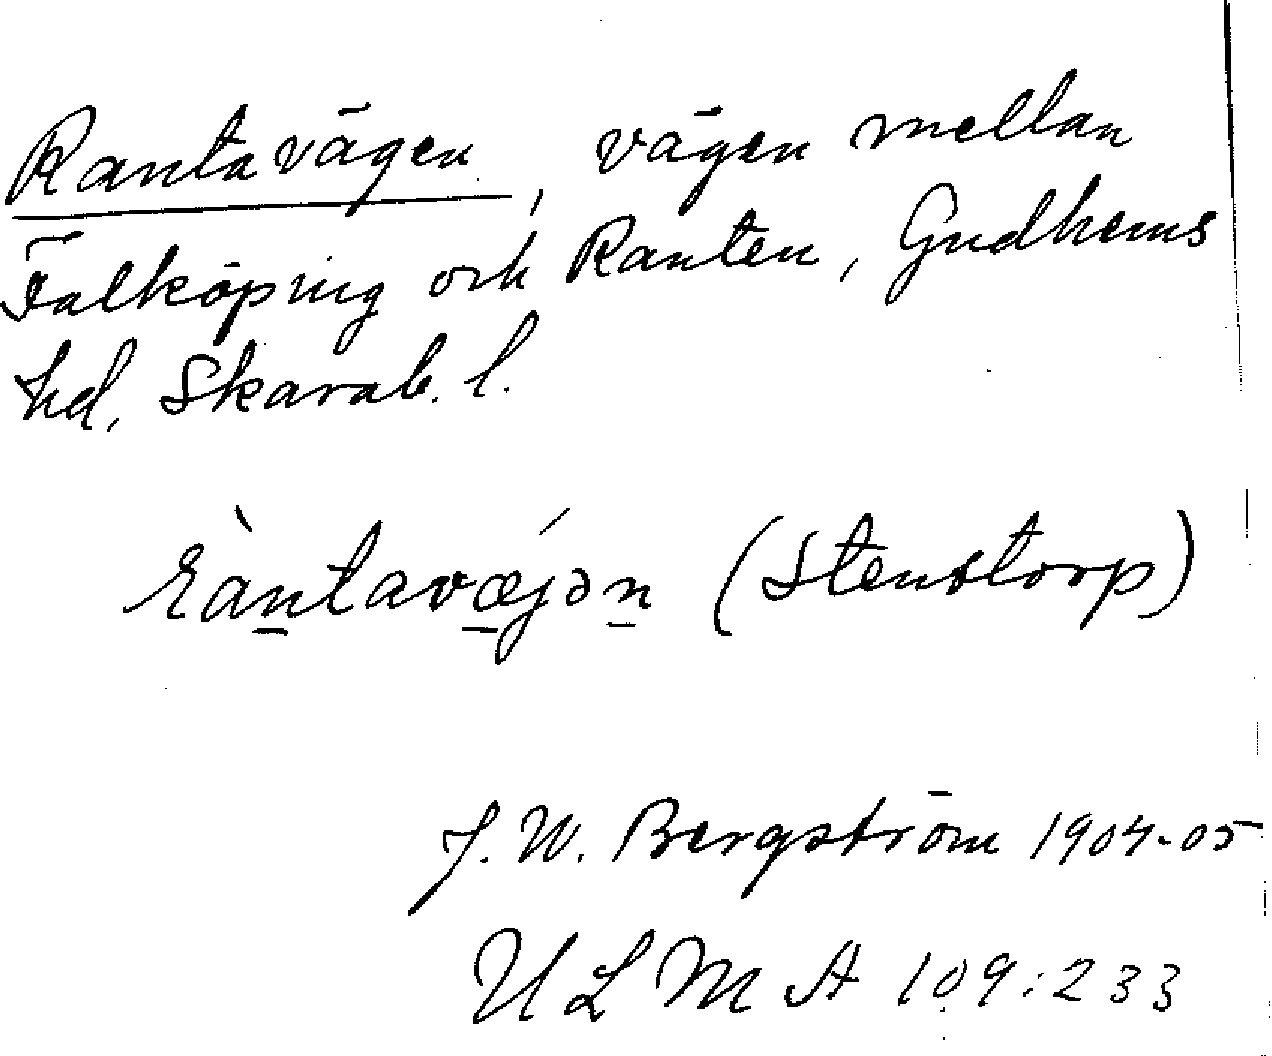 Rantavägen, vägen mellan
Falköping och Ranten, Gudhems
hd, Skarab. l.
ràntavæ̲jən̲ (Stenstorp)
J. W. Bergström 1904-05
ULMA 109:233